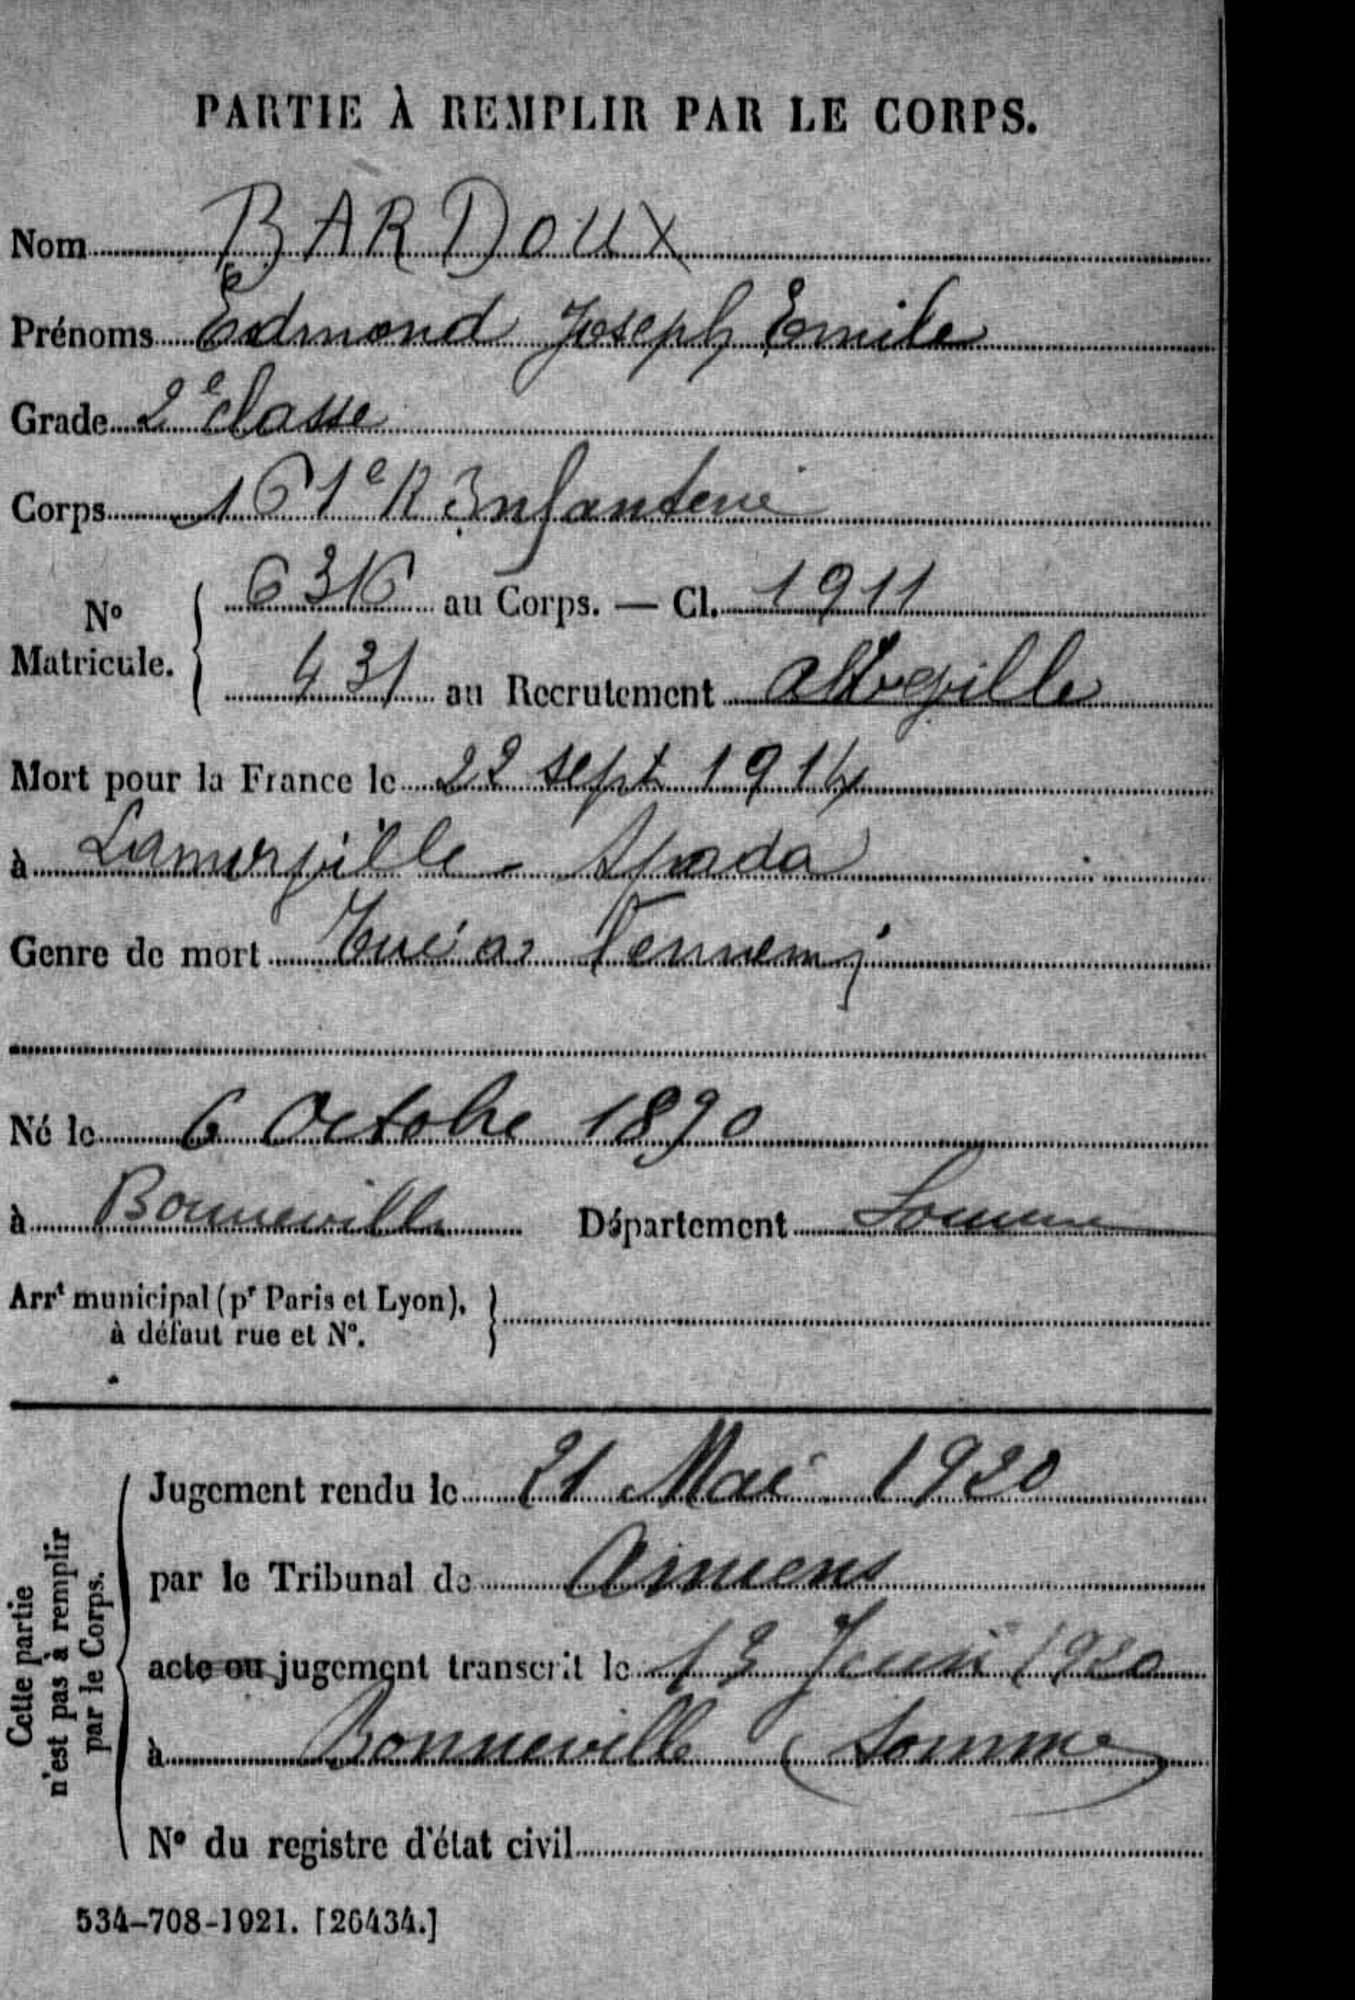 PARTIE À REMPLIR PAR LE CORPS.
Nom BARDOUX
Prénoms Edmond Joseph Emile
Grade 2e classe
Corps 161e R Infanterie
No Matricule. { 6316 au Corps. — Cl. 1911
431 au Recrutement Abbeville
Mort pour la France le 22 sept 1914
à Lamorville - Spada
Genre de mort Tué à l'ennemi
Né le 6 Octobre 1890
à Bonneville Département Somme
Arrt municipal (pr Paris et Lyon), }
à défaut rue et No.
Cette partie
n'est pas à remplir
par le Corps.
Jugement rendu le 21 Mai 1920
par le Tribunal de Amiens
acte ou jugement transcrit le 13 Juin 1920
à Bonneville (Somme)
No du registre d'état civil
534-708-1921. [26434.]